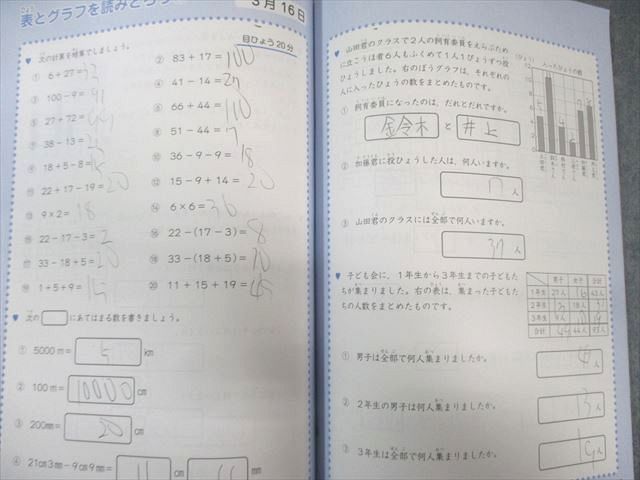 表とグラフを読みとろう
3月16日
目ひょう20分
♥ 次の計算を暗算でしましょう。
① 6+27=33
② 83+17=100
③ 100-9=91
④ 41-14=27
⑤ 27+72=
⑥ 66+44=110
⑦ 38-13=
⑧ 51-44=7
⑨ 18+5-8=15
⑩ 36-9-9=18
⑪ 22+17-19=20
⑫ 15-9+14=20
⑬ 9×2=18
⑭ 6×6=36
⑮ 22-17-3=2
⑯ 22-(17-3)=8
⑰ 33-18+5=20
⑱ 33-(18+5)=10
⑲ 1+5+9=15
⑳ 11+15+19=45
♥ 次の□にあてはまる数を書きましょう。
① 5000m=5km
② 100m=10000cm
③ 200mm=20cm
④ 21cm3mm-9cm9mm=11cm mm
♥ 山田君のクラスで2人の飼育委員をえらぶため
に立こうほ者6人もふくめて1人1ぴょうずつ投
ひょうしました。右のぼうグラフは、それぞれの
人に入ったひょうの数をまとめたものです。
(ひょう) 入ったひょうの数
10
8
6
4
2
0
① 飼育委員になったのは、だれとだれですか。
金令木 と 井上
② 加藤君に投ひょうした人は、何人いますか。
人
③ 山田君のクラスには全部で何人いますか。
37人
♥ 子ども会に、1年生から3年生までの子どもた
ちが集まりました。右の表は、集まった子どもた
ちの人数をまとめたものです。
男子 女子 合計
1年生
2年生
3年生
合計
① 男子は全部で何人集まりましたか。
人
② 2年生の男子は何人集まりましたか。
13人
③ 3年生は全部で何人集まりましたか。
19人